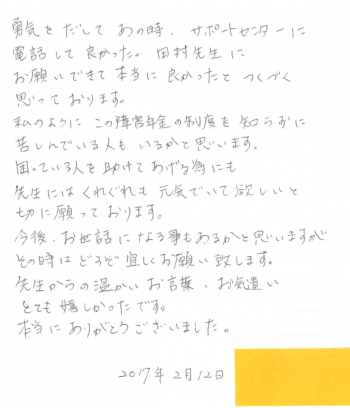 勇気をだして あの時、サポートセンターに
電話して良かった。田村先生に
お願いできて本当に良かったと つくづく
思っております。
私のように この障害年金の制度を知らずに
苦しんでいる人も いるかと思います。
困っている人を助けてあげる為にも
先生にはくれぐれも 元気でいて欲しいと
切に願っております。
今後、お世話になる事もあるかと思いますが
その時は どうぞ 宜しくお願い致します。
先生からの温かい お言葉、お気遣い
とても嬉しかったです。
本当にありがとうございました。
2017年 2月12日